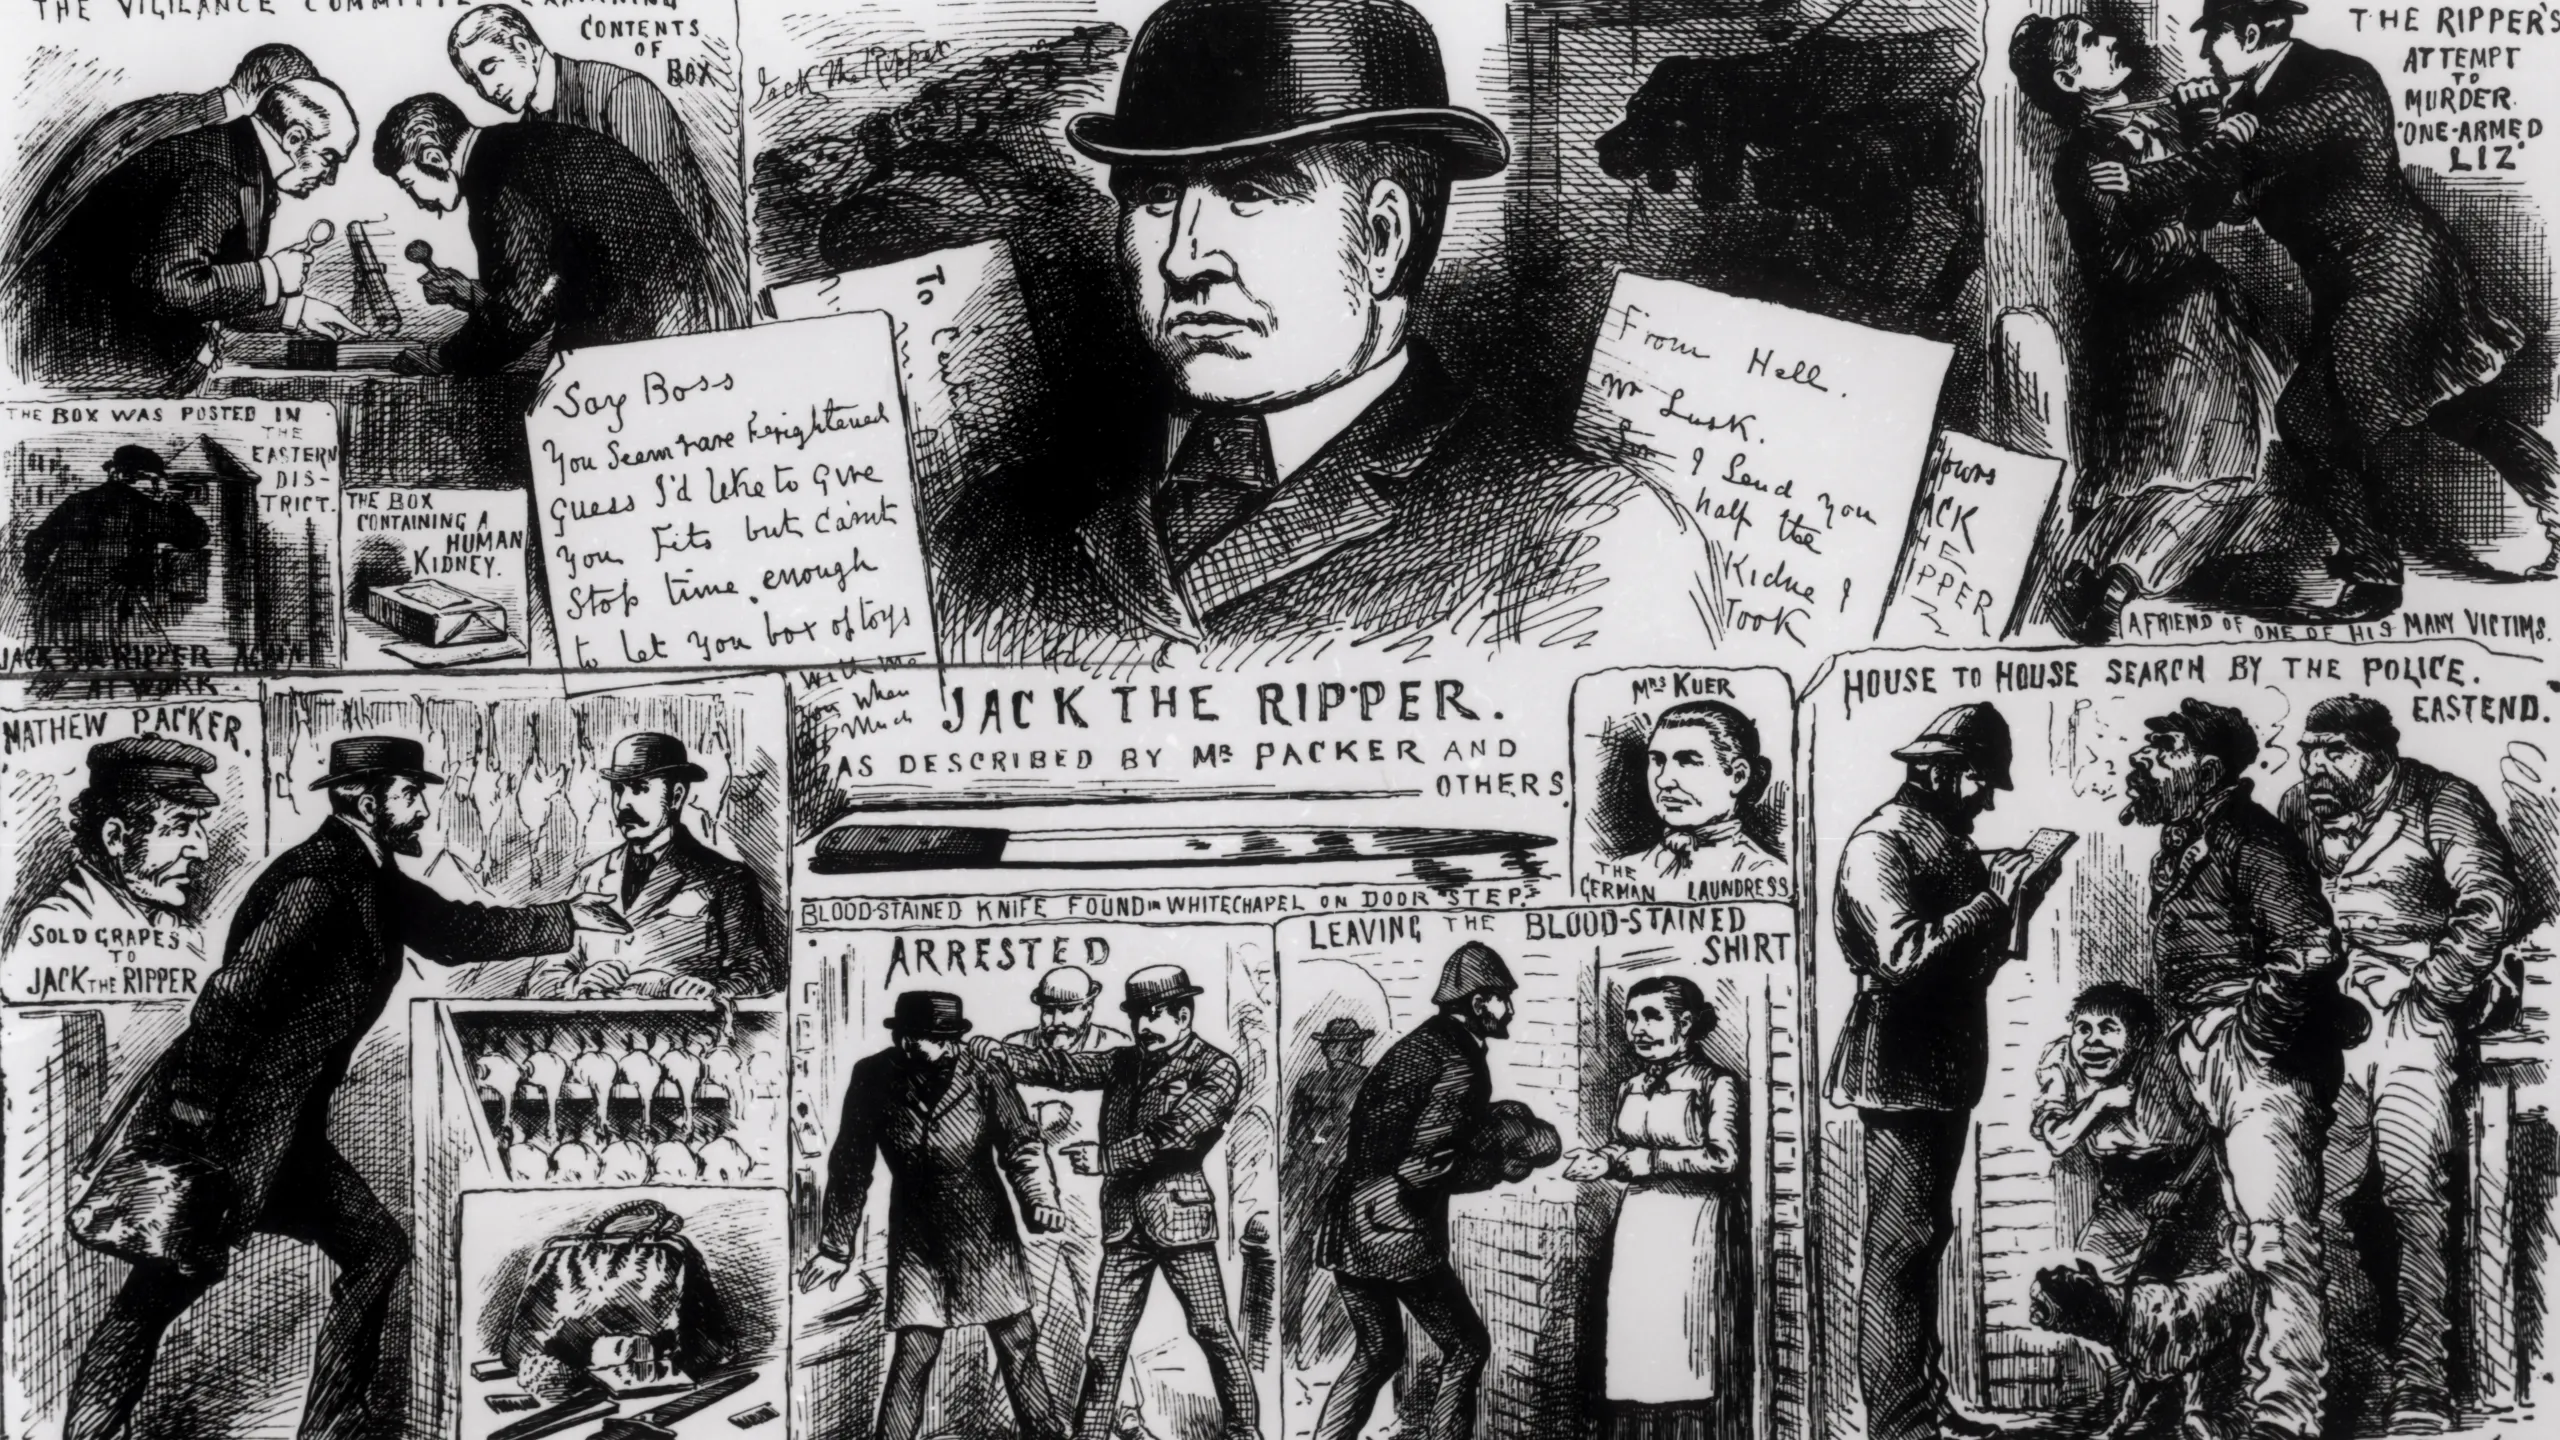 THE VIGILANCE COMMITTEE EXAMINING
CONTENTS
OF
BOX
Jack the Ripper
THE RIPPER'S
ATTEMPT
TO
MURDER.
"ONE-ARMED
LIZ"
A FRIEND OF ONE OF HIS MANY VICTIMS.
THE BOX WAS POSTED IN
THE
EASTERN
DIS-
TRICT.
JACK THE RIPPER AGAIN
AT WORK.
THE BOX
CONTAINING A
HUMAN
KIDNEY.
To
Say Boss
You Seem rare frightened
guess I'd like to give
you fits but can't
stop time enough
to let you box of toys
with me
you when
much
From Hell.
Mr Lusk.
Sor
I Send you
half the
Kidne I
Took
yours
ACK
HE
IPPER
MATHEW PACKER.
SOLD GRAPES
TO
JACK THE RIPPER
JACK THE RIPPER.
AS DESCRIBED BY MR PACKER AND
OTHERS.
BLOOD-STAINED KNIFE FOUND IN WHITECHAPEL ON DOOR "STEP."
MRS KUER
THE
GERMAN LAUNDRESS
ARRESTED
LEAVING THE BLOOD-STAINED
SHIRT
HOUSE TO HOUSE SEARCH BY THE POLICE.
EASTEND.